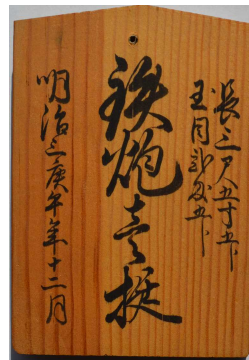 長三尺五寸五卜
玉目弐匁五卜
鉄炮壱挺
明治三庚午年十二月